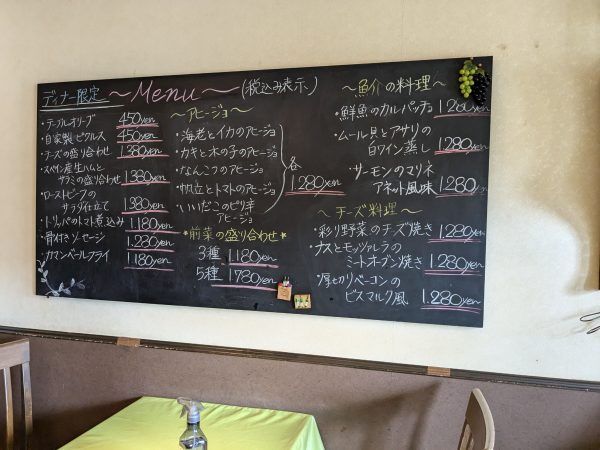 ディナー限定 ～Menu～ (税込み表示)
・テーブルオリーブ 450yen
・自家製ピクルス 450yen
・チーズの盛り合わせ 1.380yen
・スペイン産生ハムと
サラミの盛り合わせ 1.380yen
・ローストビーフの
サラダ仕立て 1.380yen
・トリッパのトマト煮込み 1.180yen
・骨付きソーセージ 1.280yen
・カマンベールフライ 1.180yen
～アヒージョ～
・海老とイカのアヒージョ
・カキと木の子のアヒージョ
・なんこつのアヒージョ
・帆立とトマトのアヒージョ
・いいだこのピリ辛
アヒージョ
各 1.280yen
*前菜の盛り合わせ*
3種 1.180yen
5種 1.780yen
～魚介の料理～
・鮮魚のカルパッチョ 1.280yen
・ムール貝とアサリの
白ワイン蒸し 1.280yen
・サーモンのマリネ
アネット風味 1.280yen
～チーズ料理～
・彩り野菜のチーズ焼き 1.280yen
・ナスとモッツァレラの
ミートオーブン焼き 1.280yen
・厚切りベーコンの
ビスマルク風 1.280yen